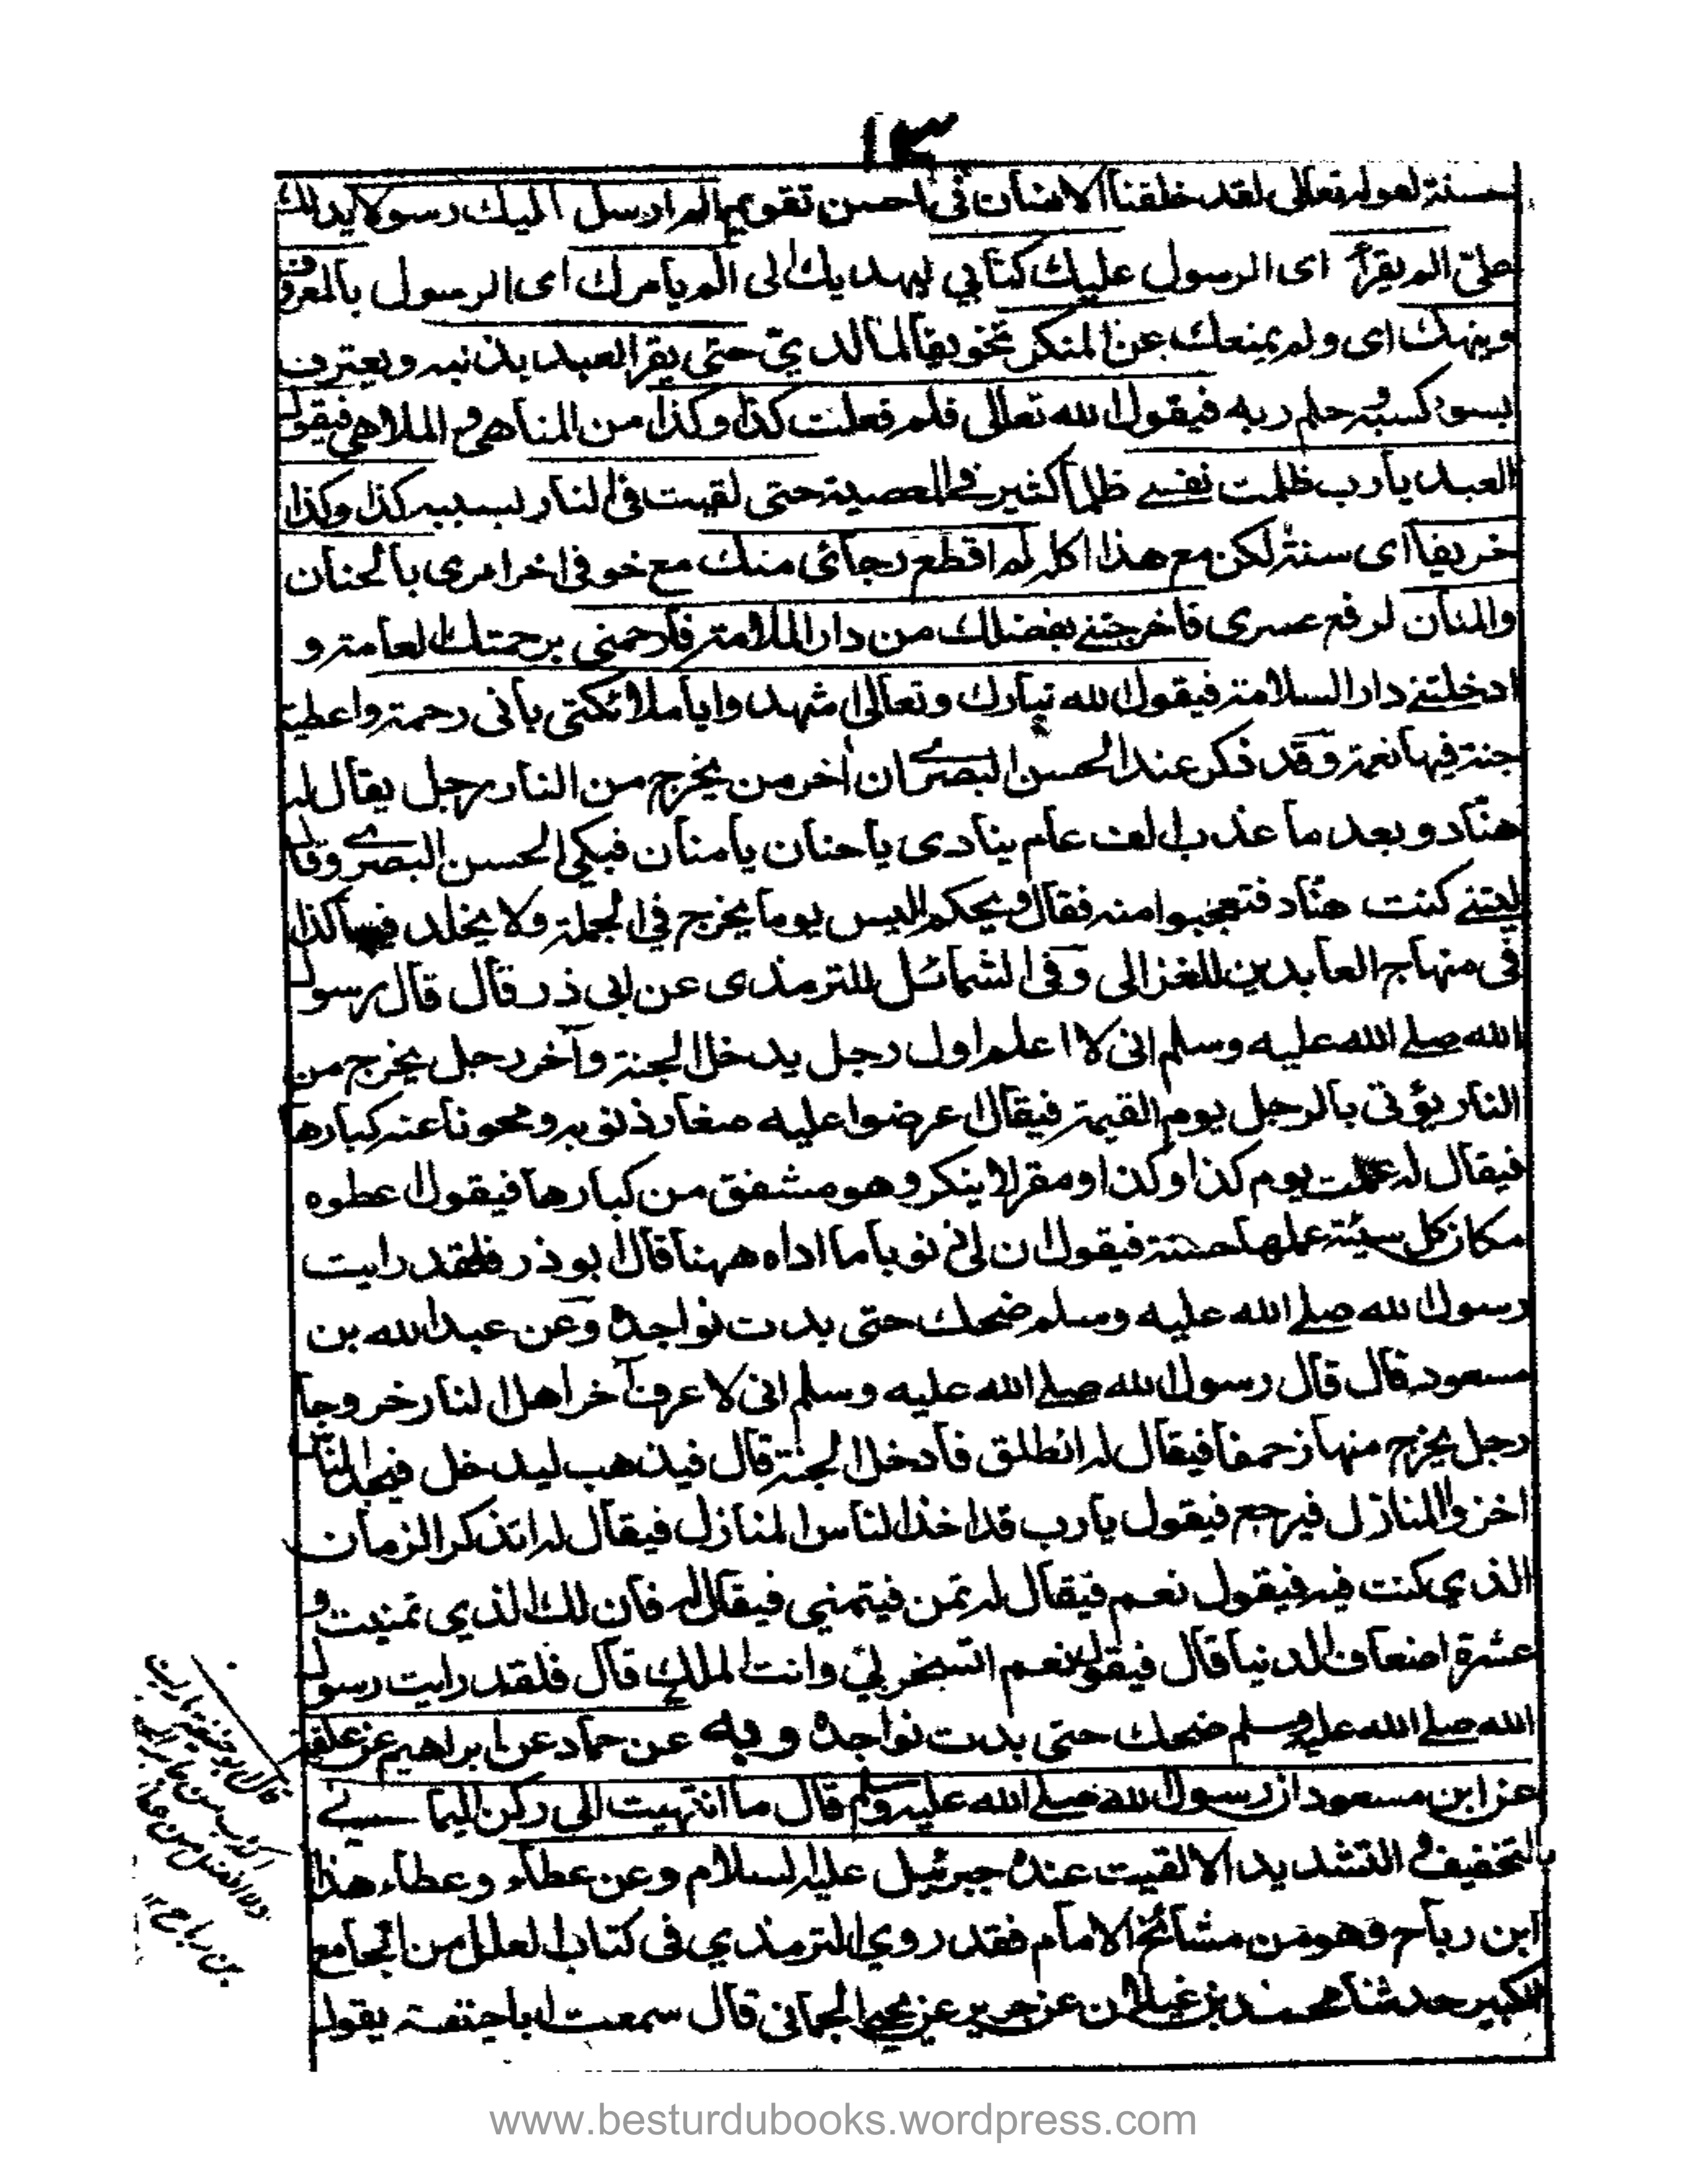 ١٣
حسنة لقوله تعالى لقد خلقنا الانسان فى احسن تقويم الم ارسل اليك رسولا يدلك
علىّ الم يقرأ اى الرسول عليك كتابي ليهديك الى الم يأمرك اى الرسول بالمعروف
وينهك اى ولم يمنعك عن المنكر تخويفا لما لدىّ حتى يقر العبد بذنبه ويعترف
بسوء كسبه وحلم ربه فيقول الله تعالى فلم فعلت كذا وكذا من المناهى والملاهى فيقول
العبد يارب ظلمت نفسى ظلما كثيرا فى المعصية حتى لقيت فى النار بسببه كذا وكذا
خريفا اى سنة لكن مع هذا كله لم اقطع رجائى منك مع خوفى اخر امرى بالحنان
والمنان لرفع عسرى فاخرجتنى بفضلك من دار الملامة فارحمنى برحمتك العامة و
ادخلتنى دار السلامة فيقول الله تبارك وتعالى اشهدوا ياملائكتى بانى رحمته واعطيته
جنة فيها نعمة وقد ذكر عند الحسن البصرى ان اخر من يخرج من النار رجل يقال له
هنّاد وبعد ما عذب الف عام ينادى ياحنان يامنان فبكى الحسن البصرى وقال
ليتنى كنت هنّاد فتعجبوا منه فقال ويحكم اليس يوما يخرج فى الجملة ولا يخلد فيها كذا
فى منهاج العابدين للغزالى وفى الشمائل للترمذى عن ابى ذر قال قال رسول
الله صلى الله عليه وسلم انى لا اعلم اول رجل يدخل الجنة وآخر رجل يخرج من
النار يؤتى بالرجل يوم القيمة فيقال اعرضوا عليه صغار ذنوبه ومحونا عنه كبارها
فيقال له عملت يوم كذا وكذا ومقر لا ينكر وهو مشفق من كبارها فيقول اعطوه
مكان كل سيئة عملها حسنة فيقول ان لى ذنوبا ما اداه ههنا قال ابو ذر فلقد رايت
رسول الله صلى الله عليه وسلم ضحك حتى بدت نواجذه وعن عبد الله بن
مسعود قال قال رسول الله صلى الله عليه وسلم انى لاعرف آخر اهل النار خروجا
رجل يخرج منها زحفا فيقال له انطلق فادخل الجنة قال فيذهب ليدخل فيجد الناس
اخذوا المنازل فيرجع فيقول يارب قد اخذ الناس المنازل فيقال له اتذكر الزمان
الذي كنت فيه فيقول نعم فيقال له تمن فيتمني فيقال له فان لك الذي تمنيت و
عشرة اضعاف الدنيا قال فيقول نعم اتسخر بي وانت الملك قال فلقد رايت رسول
الله صلى الله عليه وسلم ضحك حتى بدت نواجذه وبه عن حماد عن ابراهيم عن علقمة
عن ابن مسعود ان رسول الله صلى الله عليه وسلم قال ما انتهيت الى ركن اليمانى
بالتخفيف والتشديد الا لقيت عنده جبرئيل عليه السلام وعن عطاء وعطاء هذا
ابن رباح وهو من مشائخ الامام فقد روي الترمذي فى كتاب العلل من الجامع
الكبير حدثنا محمود بن غيلان عن جرير عن يحيى الحمانى قال سمعت ابا حنيفة يقول
قال ابو حنيفة ما رأيت
اكذب من جابر
ولا افضل من عطاء
بن رباح ١٢
www.besturdubooks.wordpress.com